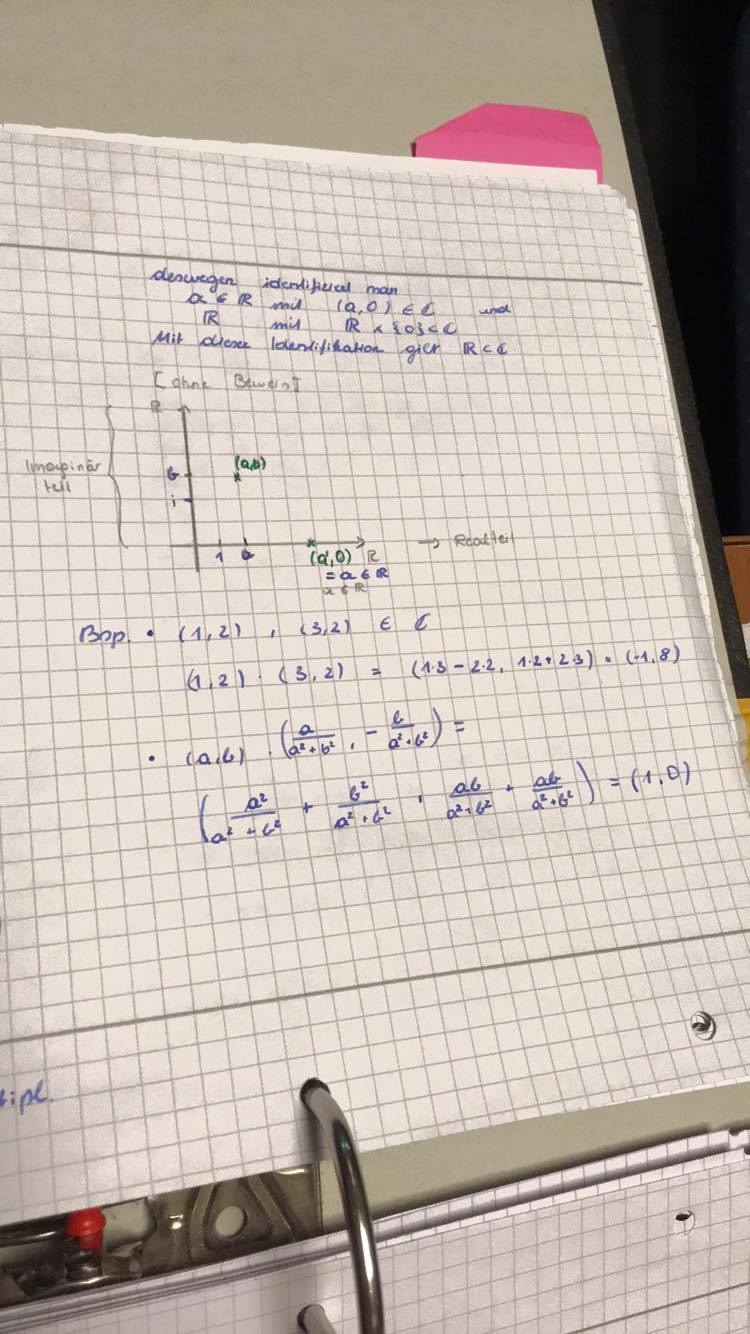 deswegen identifiziert man
a ∈ ℝ mit (a,0) ∈ ℂ und
ℝ mit ℝ × {0} ⊂ ℂ
Mit dieser Identifikation gilt ℝ ⊂ ℂ
[ohne Beweis]
ℝ
Imaginär
teil
(a,b)
b
i
1 a
(a,0) ℝ → Realteil
= a ∈ ℝ
Bsp. • (1,2) , (3,2) ∈ ℂ
(1,2) · (3,2) = (1·3 - 2·2, 1·2 + 2·3) = (-1,8)
• (a,b) · (a/(a²+b²), - b/(a²+b²)) =
(a²/(a²+b²) + b²/(a²+b²), ab/(a²+b²) + ab/(a²+b²)) = (1,0)
tipl.